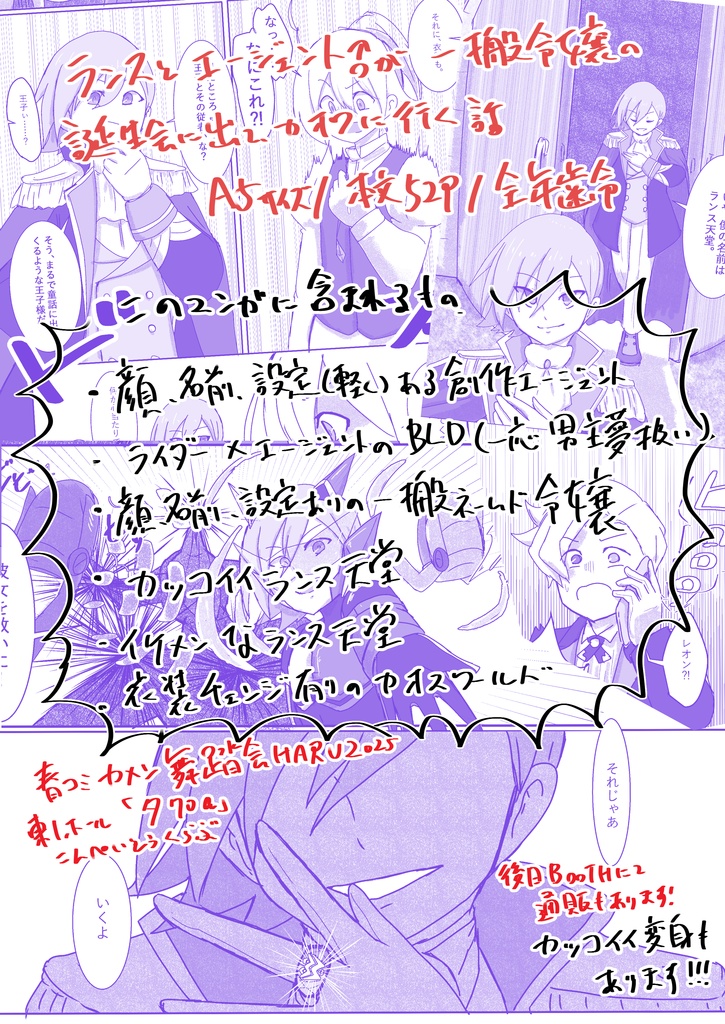 ランスとエージェント♂が一搬令嬢の
誕生会に出てカオスに行く話
A5サイズ/本文52P/全年齢
このマンガに含まれるもの
・顔、名前、設定(軽い)ある創作エージェント
・ライダー×エージェントのBLD(一応男主夢扱い)
・顔、名前、設定ありの一搬ネームド令嬢
・カッコイイランス天堂
・イケメンなランス天堂
・衣装チェンジ有りのカオスワールド
春コミ カメン舞踏会HARU2025
東1ホール「タ70a」
こんぺいとうくらぶ
後日BOOTHにて
通販もあります!
カッコイイ変身も
あります!!!
それに、衣
も。
なっ
なにこれ?!
王子ぃ……?
そう、まるで童話に出
くるような王子様だ
僕の名前は
ランス天堂。
レオン?!
それじゃあ
いくよ